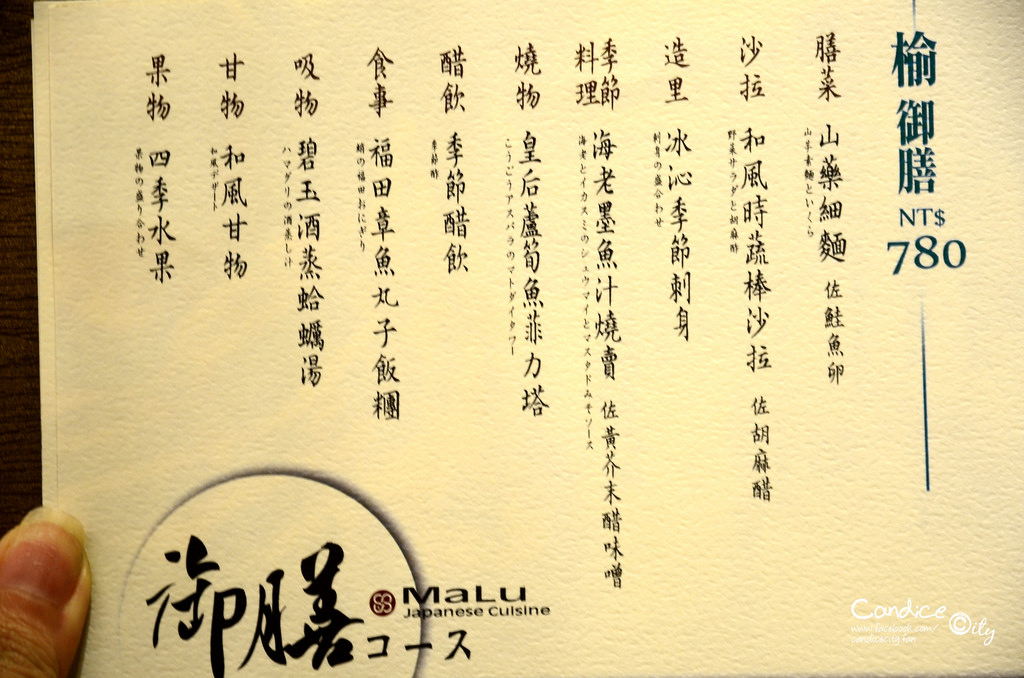 榆御膳
NT$
780
膳菜 山藥細麵 佐鮭魚卵
山芋素麺といくら
沙拉 和風時蔬棒沙拉 佐胡麻醋
野菜サラダと胡麻酢
造里 冰沁季節刺身
刺身の盛合わせ
季節料理 海老墨魚汁燒賣 佐黃芥末醋味噌
海老とイカスミのシュウマイとマスタドみそソース
燒物 皇后蘆筍魚菲力塔
こうごうアスパラのマトダイタワー
醋飲 季節醋飲
季節酢
食事 福田章魚丸子飯糰
蛸の福田おにぎり
吸物 碧玉酒蒸蛤蠣湯
ハマグリの酒蒸し汁
甘物 和風甘物
和風デザート
果物 四季水果
果物の盛り合わせ
御膳コース
MaLu
Japanese Cuisine
Candice City
www.facebook.com/
candicecity.fan